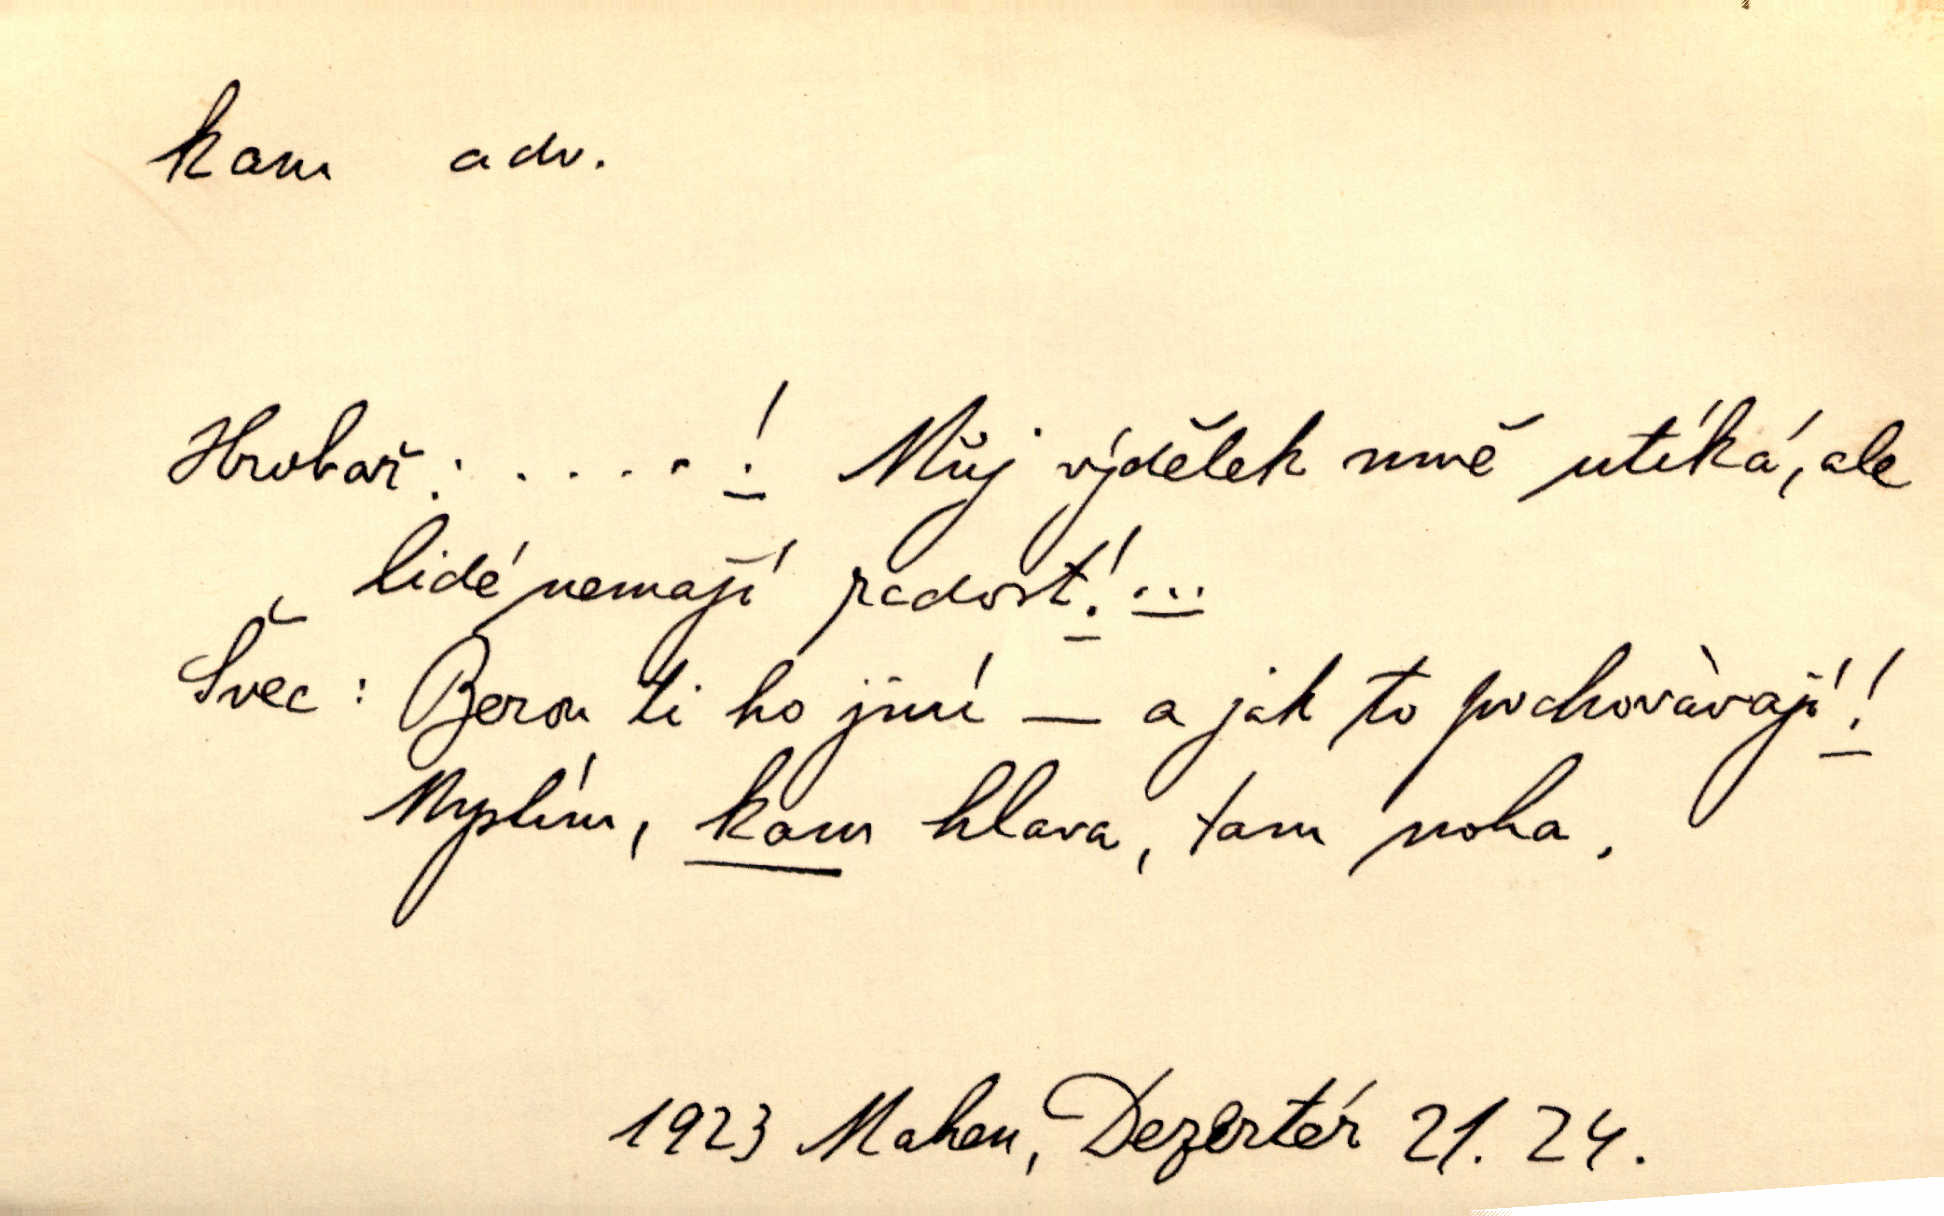 kam adv.
Hrobař: . . . . . ! Můj výdělek mně utíká, ale
lidé nemají radost! ...
Švec: Berou ti ho jiní — a jak to pochovávají!
Myslím, kam hlava, tam noha.
1923 Mahen, Dezertér 21. 24.